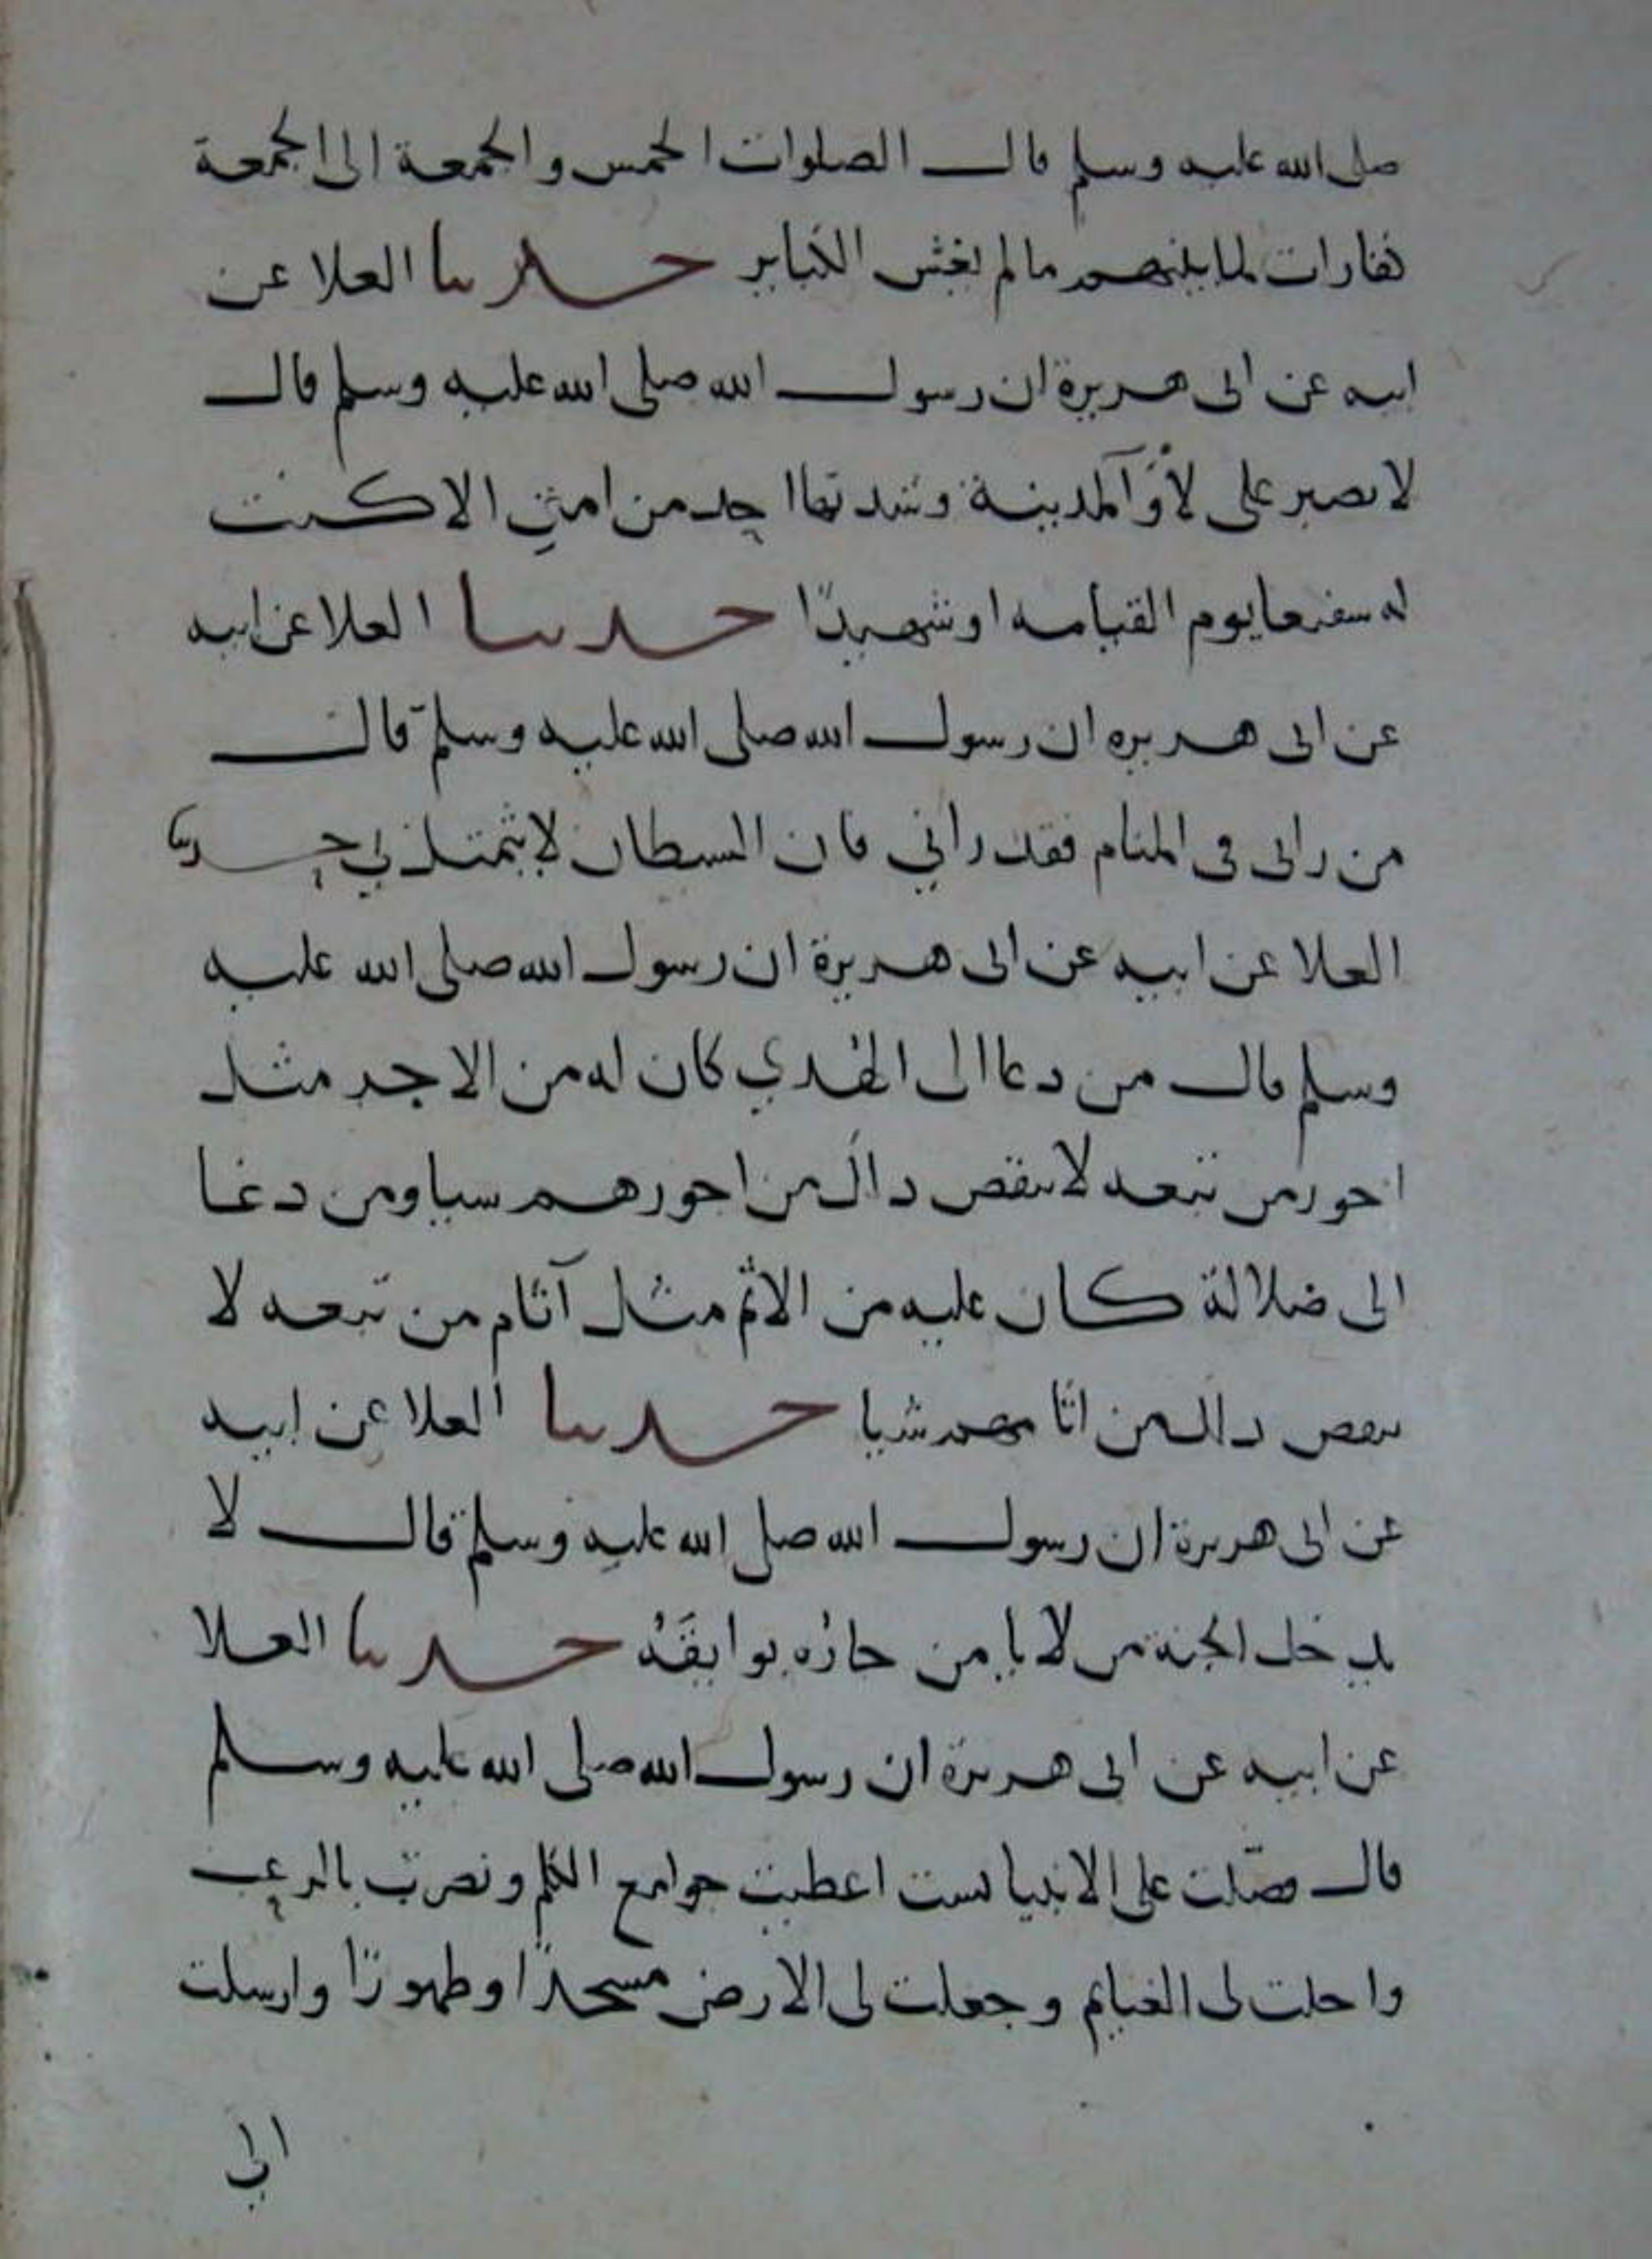 صلى الله عليه وسلم قال الصلوات الخمس والجمعة الى الجمعة
كفارات لما بينهم ما لم تغش الكباير حدثنا العلا عن
ابيه عن ابى هريرة ان رسول الله صلى الله عليه وسلم قال
لا يصبر على لأوآ المدينة وشدتها احد من امتي الا كنت
له شفيعا يوم القيامه او شهيدًا حدثنا العلا عن ابيه
عن ابى هريره ان رسول الله صلى الله عليه وسلم قال
من رانى فى المنام فقد راني فان الشيطان لا يتمثل بي حدثنا
العلا عن ابيه عن ابى هريرة ان رسول الله صلى الله عليه
وسلم قال من دعا الى الهدي كان له من الاجر مثل
اجور من تبعه لا ينقص ذالك من اجورهم شيا ومن دعا
الى ضلالة كان عليه من الاثم مثل آثام من تبعه لا
ينقص ذالك من اثامهم شيا حدثنا العلا عن ابيه
عن ابى هريرة ان رسول الله صلى الله عليه وسلم قال لا
يدخل الجنة من لا يامن جاره بوايقَهُ حدثنا العلا
عن ابيه عن ابى هريرة ان رسول الله صلى الله عليه وسلم
قال فضّلت على الانبيا بست اعطيت جوامع الكلم ونصرت بالرعب
واحلت لى الغنايم وجعلت لى الارض مسجدًا وطهورًا وارسلت
الى